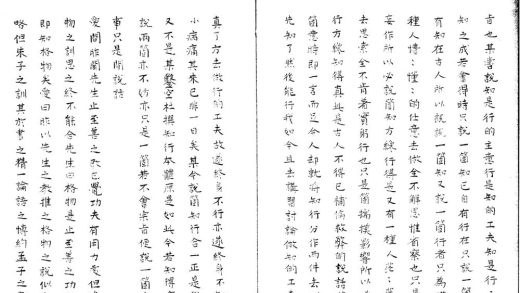 旨也某嘗說知是行的主意行是知的工夫知是行
知之成若會得時只說一箇知已自有行在只說一
有知在古人所以既說一箇知又說一箇行者只為
種人懵:懂:的任意去做全不解思惟省察也只
妄作所以必說箇知方纔行得是又有一種人茫:
去思索全不肯著實躬行也只是箇揣摸影響所以
行方纔知得真此是古人不得已補偏救弊的說話
箇意時即一言而足今人却就將知行分作兩件去
先知了然後能行我如今且去講習討論做知的工
真了方去做行的工夫故遂終身不行亦遂終身不
小病痛其來已非一日矣某今說箇知行合一正是
又不是某鑿空杜撰知行本體原是如此今若知得
說兩箇亦不妨亦只是一箇若不會宗旨便說一箇
事只是閒說話
愛問昨聞先生止至善之教已覺功夫有用力處但
物之訓思之終不能合先生曰格物是止至善之功
即知格物矣愛曰昨以先生之教推之格物之說似
略但朱子之訓其於書之精一論語之博約孟子之